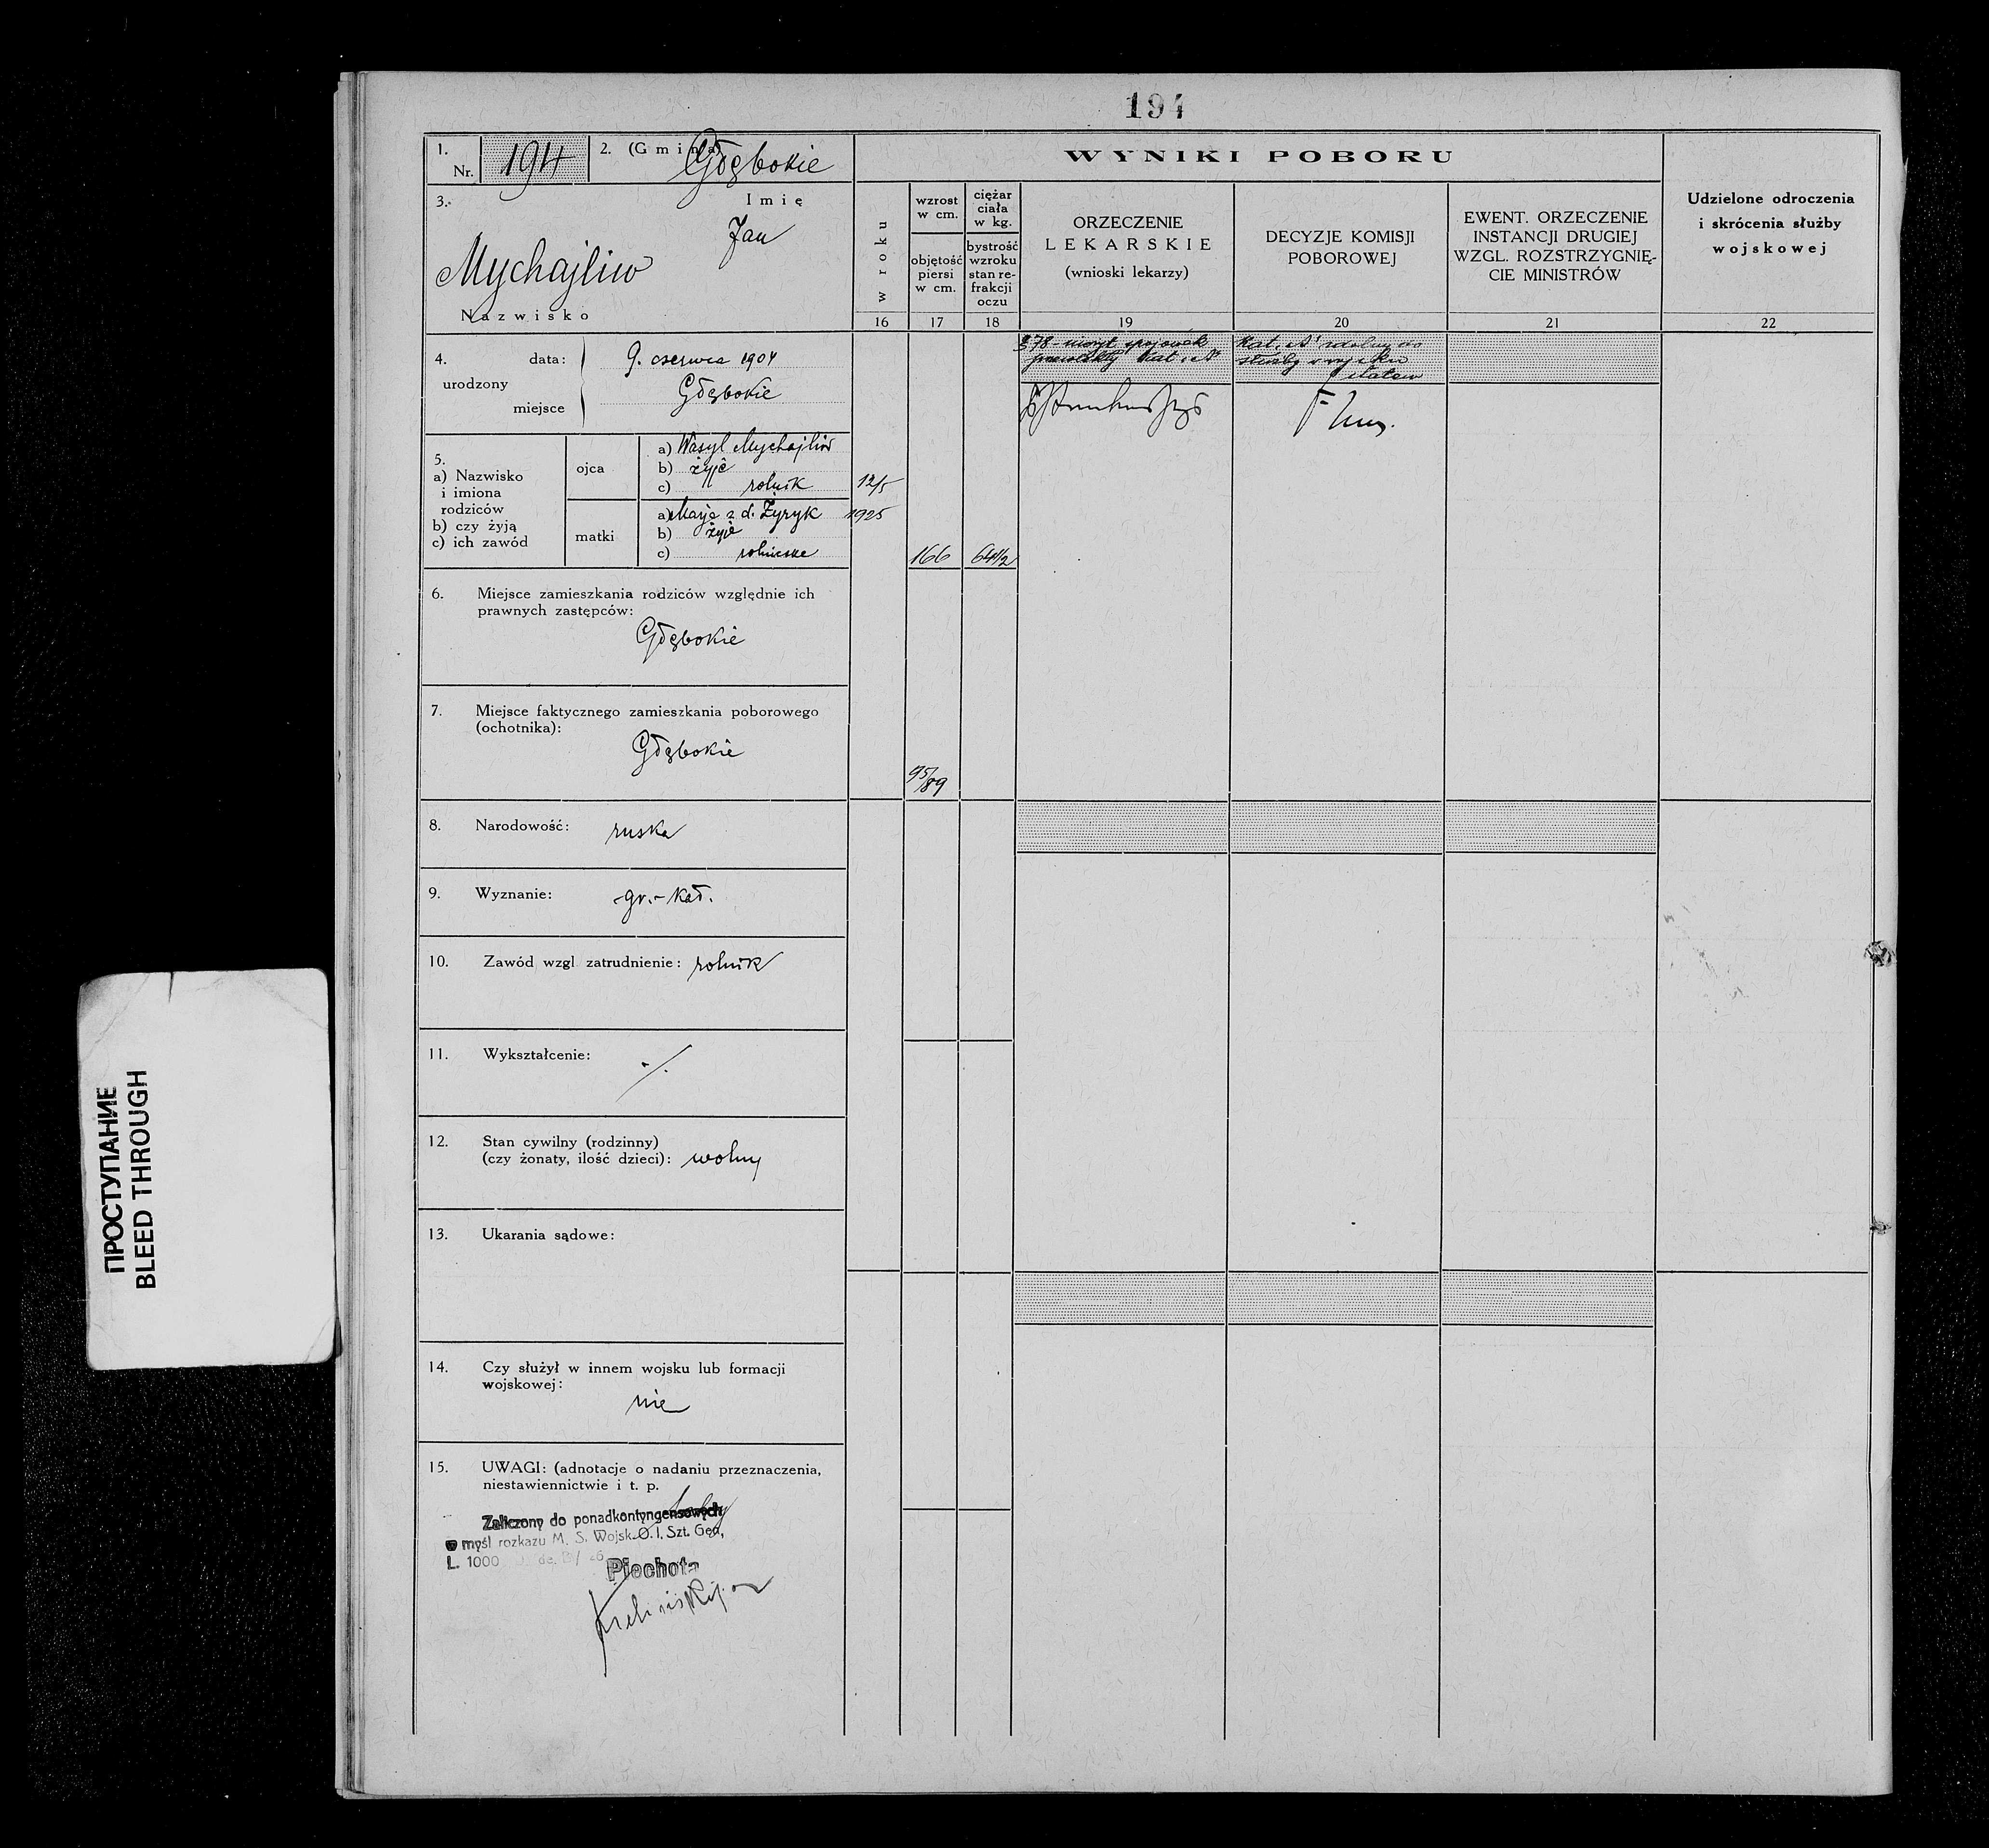 194
1.
Nr. 194
2. (Gmina) Głębokie
3.
Imię
Jan
Mychajliw
Nazwisko
4.
urodzony
data: 9. czerwca 1904
miejsce Głębokie
5.
a) Nazwisko
i imiona
rodziców
b) czy żyją
c) ich zawód
ojca
a) Wasyl Mychajliw
b) żyje
c) rolnik
matki
a) Marja z d. Żyryk
b) żyje
c)
6. Miejsce zamieszkania rodziców względnie ich
prawnych zastępców:
Głębokie
7. Miejsce faktycznego zamieszkania poborowego
(ochotnika):
Głębokie
8. Narodowość: ruska
9. Wyznanie: gr.-kat.
10. Zawód wzgl zatrudnienie: rolnik
11. Wykształcenie: ./.
12. Stan cywilny (rodzinny)
(czy żonaty, ilość dzieci): wolny
13. Ukarania sądowe:
14. Czy służył w innem wojsku lub formacji
wojskowej:
nie
15. UWAGI: (adnotacje o nadaniu przeznaczenia,
niestawiennictwie i t. p.
Zaliczony do ponadkontyngensowych
w myśl rozkazu M. S. Wojsk. O. I, Szt. Gen,
L. 1000
Piechota
WYNIKI POBORU
w roku
16
wzrost
w cm.
objętość
piersi
w cm.
17
ciężar
ciała
w kg.
bystrość
wzroku
stan re-
frakcji
oczu
18
ORZECZENIE
LEKARSKIE
(wnioski lekarzy)
19
DECYZJE KOMISJI
POBOROWEJ
20
EWENT. ORZECZENIE
INSTANCJI DRUGIEJ
WZGL. ROZSTRZYGNIĘ-
CIE MINISTRÓW
21
Udzielone odroczenia
i skrócenia służby
wojskowej
22
12/5
1925
166
64 1/2
95/89
§ 78 spojówek
Kat. A
Kat. A zdolny do
służby wojsku
ПРОСТУПАНИЕ
BLEED THROUGH